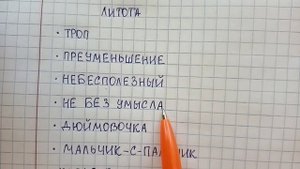 ЛИТОТА
· ТРОП
· ПРЕУМЕНЬШЕНИЕ
· НЕБЕСПОЛЕЗНЫЙ
· НЕ БЕЗ УМЫСЛА
· ДЮЙМОВОЧКА